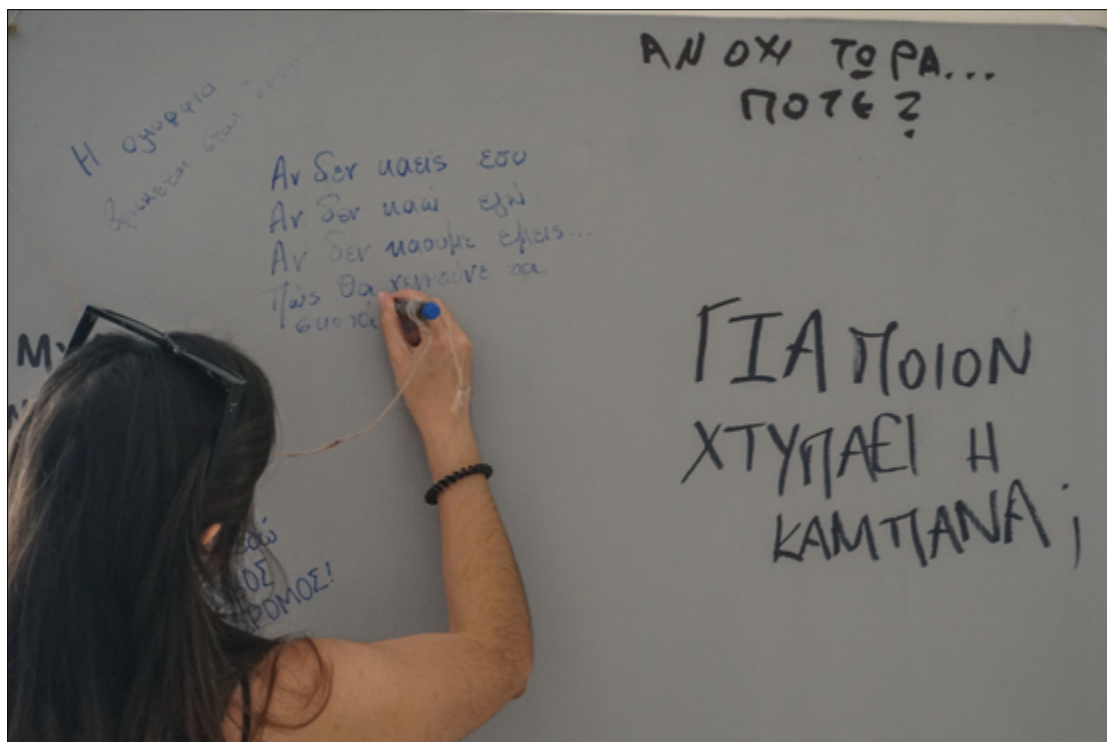 ΑΝ ΟΧΙ ΤΩΡΑ...
ΠΟΤΕ?
Η ομορφια
βρισκεται στον
Αν δεν καεις εσυ
Αν δεν καώ εγώ
Αν δεν καουμε εμεις...
Πώς θα γεννούνε τα
σκοτά
ΓΙΑ ΠΟΙΟΝ
ΧΤΥΠΑΕΙ Η
ΚΑΜΠΑΝΑ;
εδώ
ΡΟΜΟΣ!